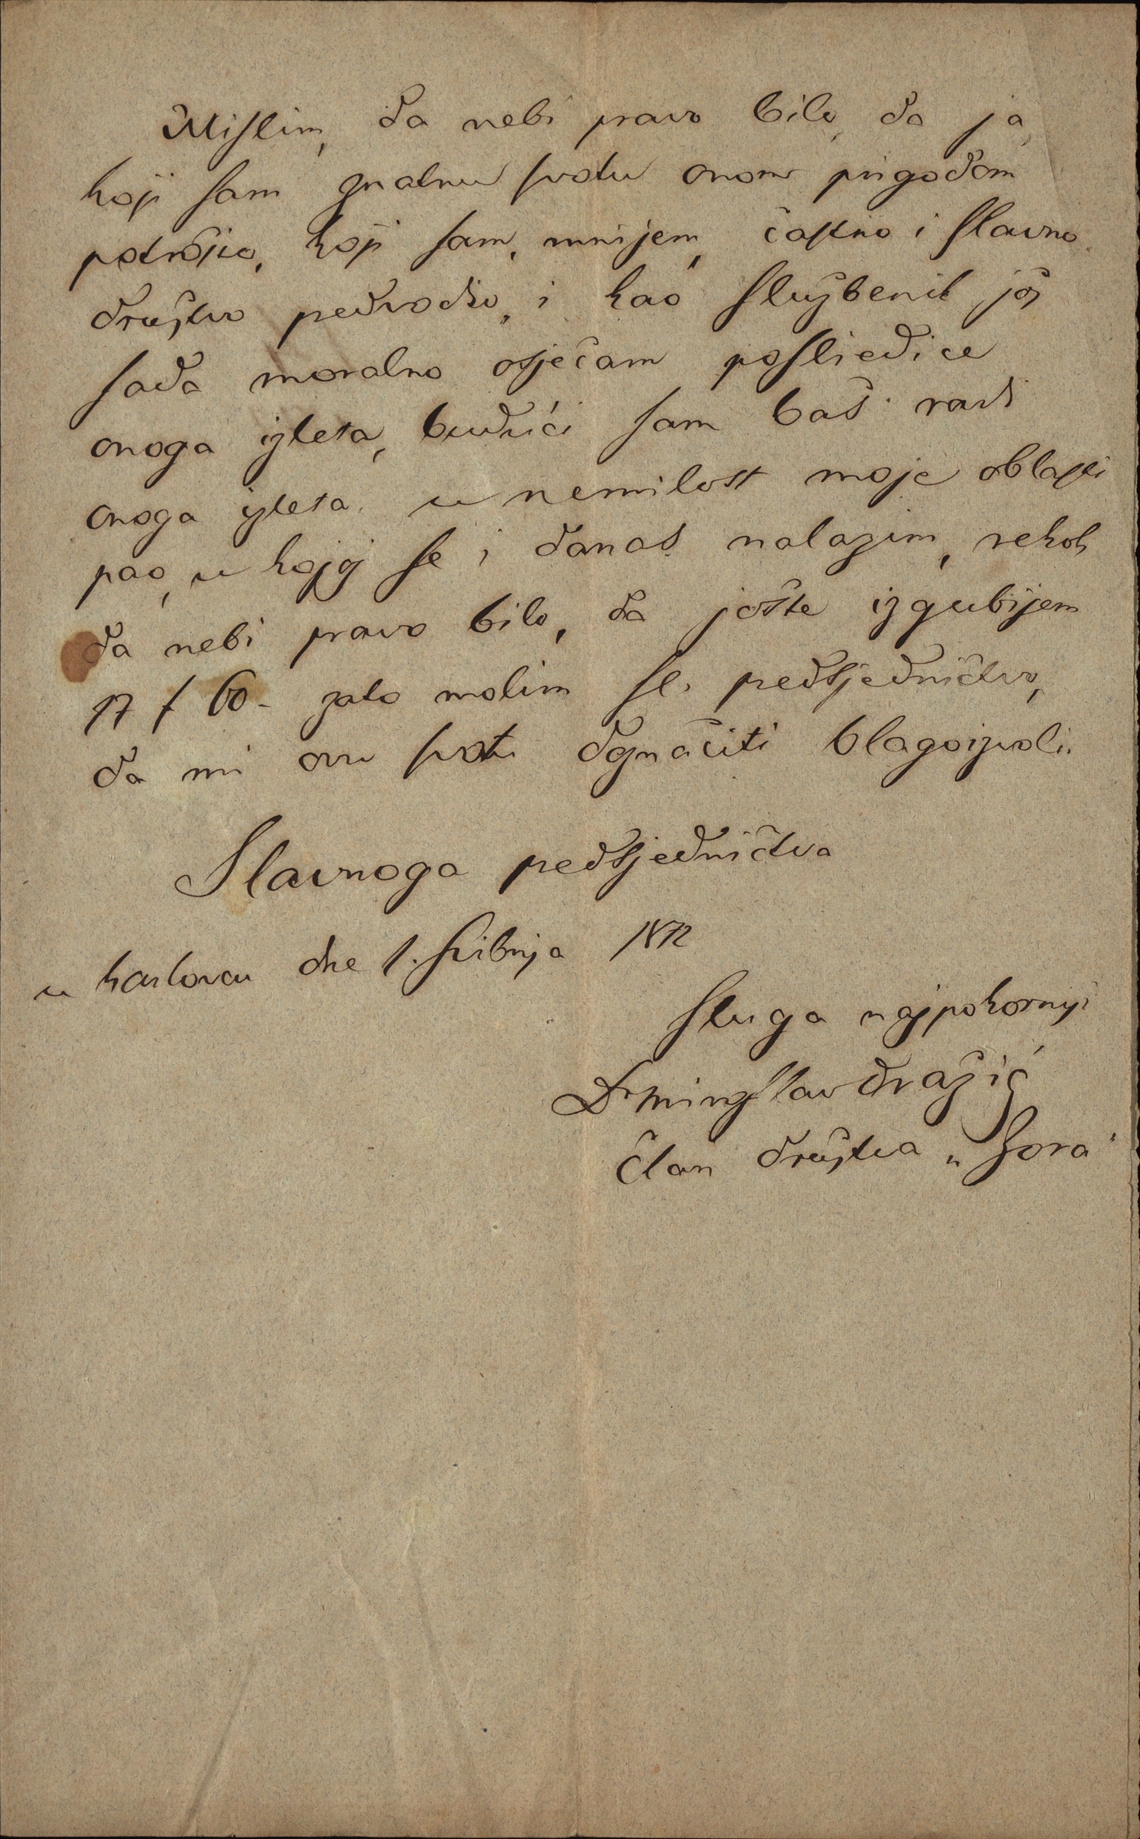 Mislim, da nebi pravo bilo, da ja
koji sam znatnu svotu onom prigodom
potrošio, koji sam, mnijem, častno i slavno
družtvo predvodio, i kao službenik još
sada moralno osjećam posliedice
onoga izleta, budući sam baš radi
onoga izleta u nemilost moje oblasti
pao, u kojoj se i danas nalazim, rekoh
da nebi pravo bilo, da jošte izgubijem
17 f 60 - zato molim sl. predsjedničtvo,
da mi ovu svotu doznačiti blagoizvoli.
Slavnoga predsjedničtva
u Karlovcu dne 1. svibnja 1872
sluga najpokornyi
Dražić
član družtva „Zora"